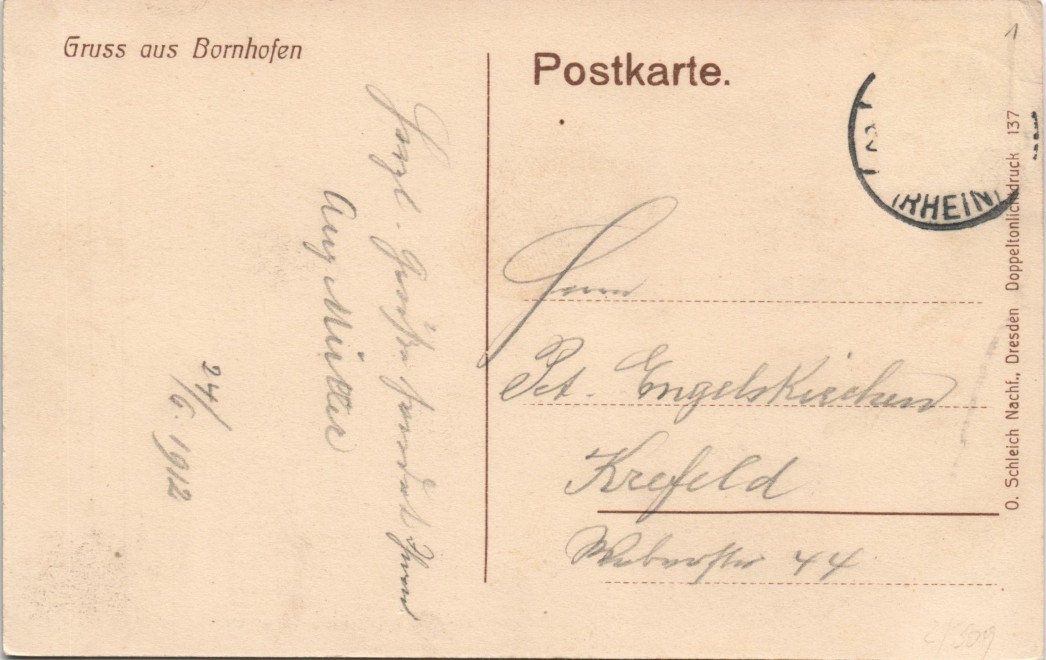 Gruss aus Bornhofen
Postkarte.
Herzl. Grüße sendet Ihnen
Aug Müller
24/
6. 1912
(RHEIN)
Herrn
Pet. Engelskirchen
Krefeld
Weberstr 44
O. Schleich Nachf., Dresden Doppeltonlichtdruck 137
1